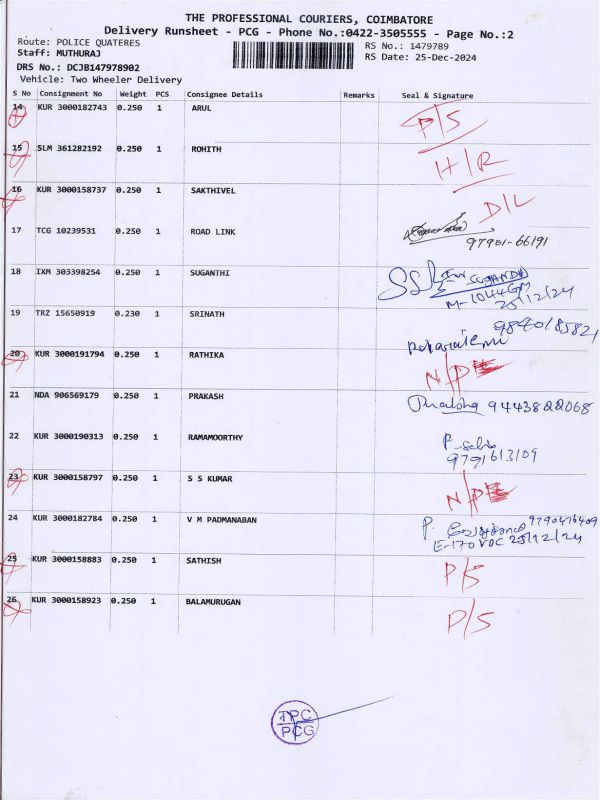 THE PROFESSIONAL COURIERS, COIMBATORE
Delivery Runsheet - PCG - Phone No.:0422-3505555 - Page No.:2
Route: POLICE QUATERES
Staff: MUTHURAJ
RS No.: 1479789
DRS No.: DCJB147978902
RS Date: 25-Dec-2024
Vehicle: Two Wheeler Delivery
S No Consignment No Weight PCS Consignee Details Remarks Seal & Signature
14 KUR 3000182743 0.250 1 ARUL P/S
15 SLM 361282192 0.250 1 ROHITH H/R
16 KUR 3000158737 0.250 1 SAKTHIVEL D/L
17 TCG 10239531 0.250 1 ROAD LINK
97901-66191
18 IXM 303398254 0.250 1 SUGANTHI SUGANDHI
25/12/24
19 TRZ 15650919 0.230 1 SRINATH 9840185821
20 KUR 3000191794 0.250 1 RATHIKA N/P
21 NDA 906569179 0.250 1 PRAKASH 9443822068
22 KUR 3000190313 0.250 1 RAMAMOORTHY
9791613109
23 KUR 3000158797 0.250 1 S S KUMAR N/P
24 KUR 3000182784 0.250 1 V M PADMANABAN P. 9790416409
E-170 VOC 25/12/24
25 KUR 3000158883 0.250 1 SATHISH P/S
26 KUR 3000158923 0.250 1 BALAMURUGAN P/S
TPC
PCG